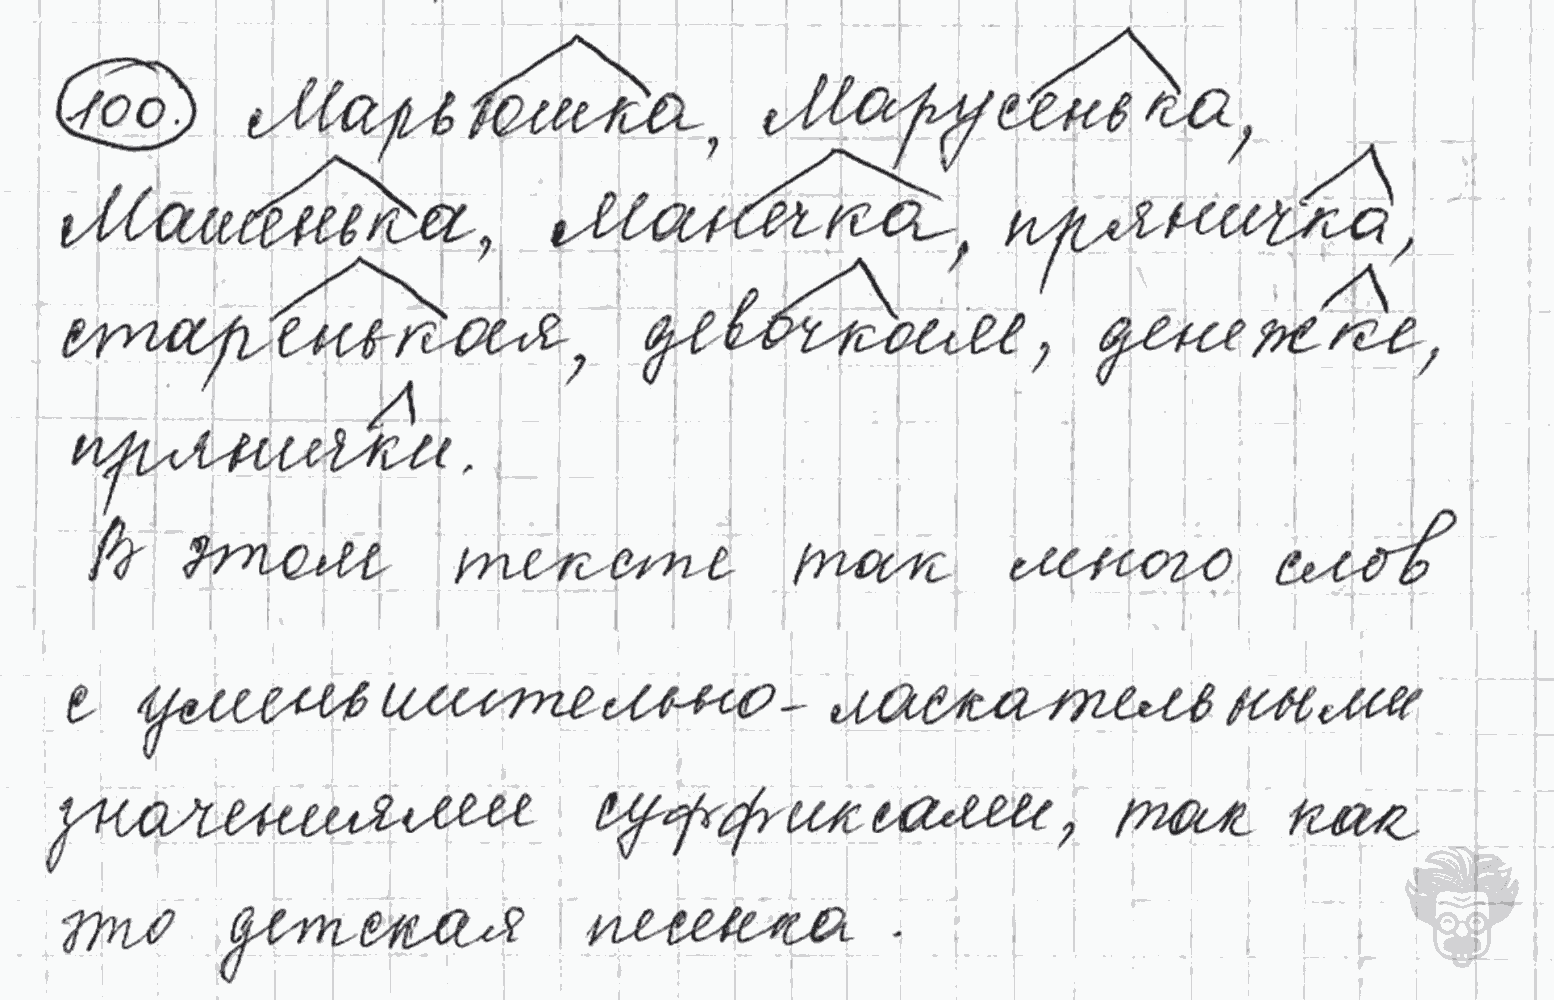 100. Марьюшка, Марусенька,
Машенька, Манечка, пряничка,
старенькая, девочкам, денежке,
прянички.
В этом тексте так много слов
с уменьшительно-ласкательными
значениями суффиксами, так как
это детская песенка.